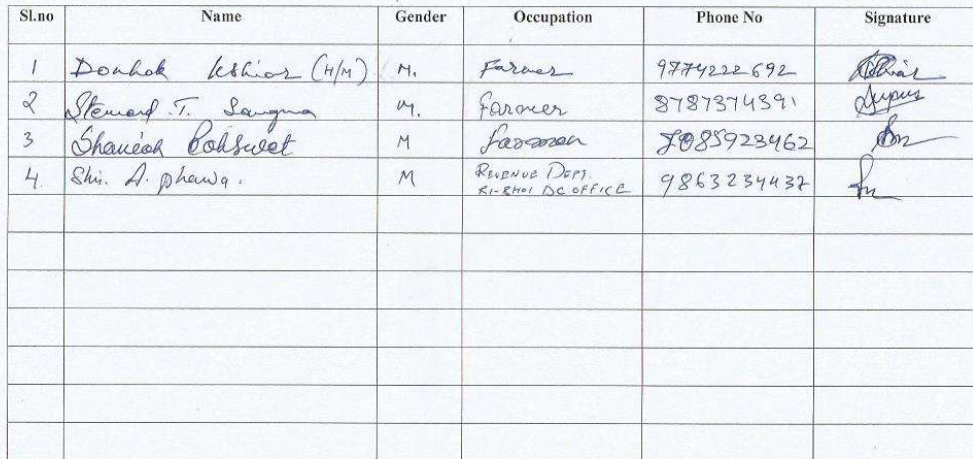 Sl.no Name Gender Occupation Phone No Signature
1 Donhok (H/M) M. Farmer 9774222692
2 Steward .T. Sangma M. Farmer 8787374391
3 M Farmer 7085923462
4. Shri. A. phawa. M REVENUE DEPT.
RI-BHOI DC OFFICE 9863234437